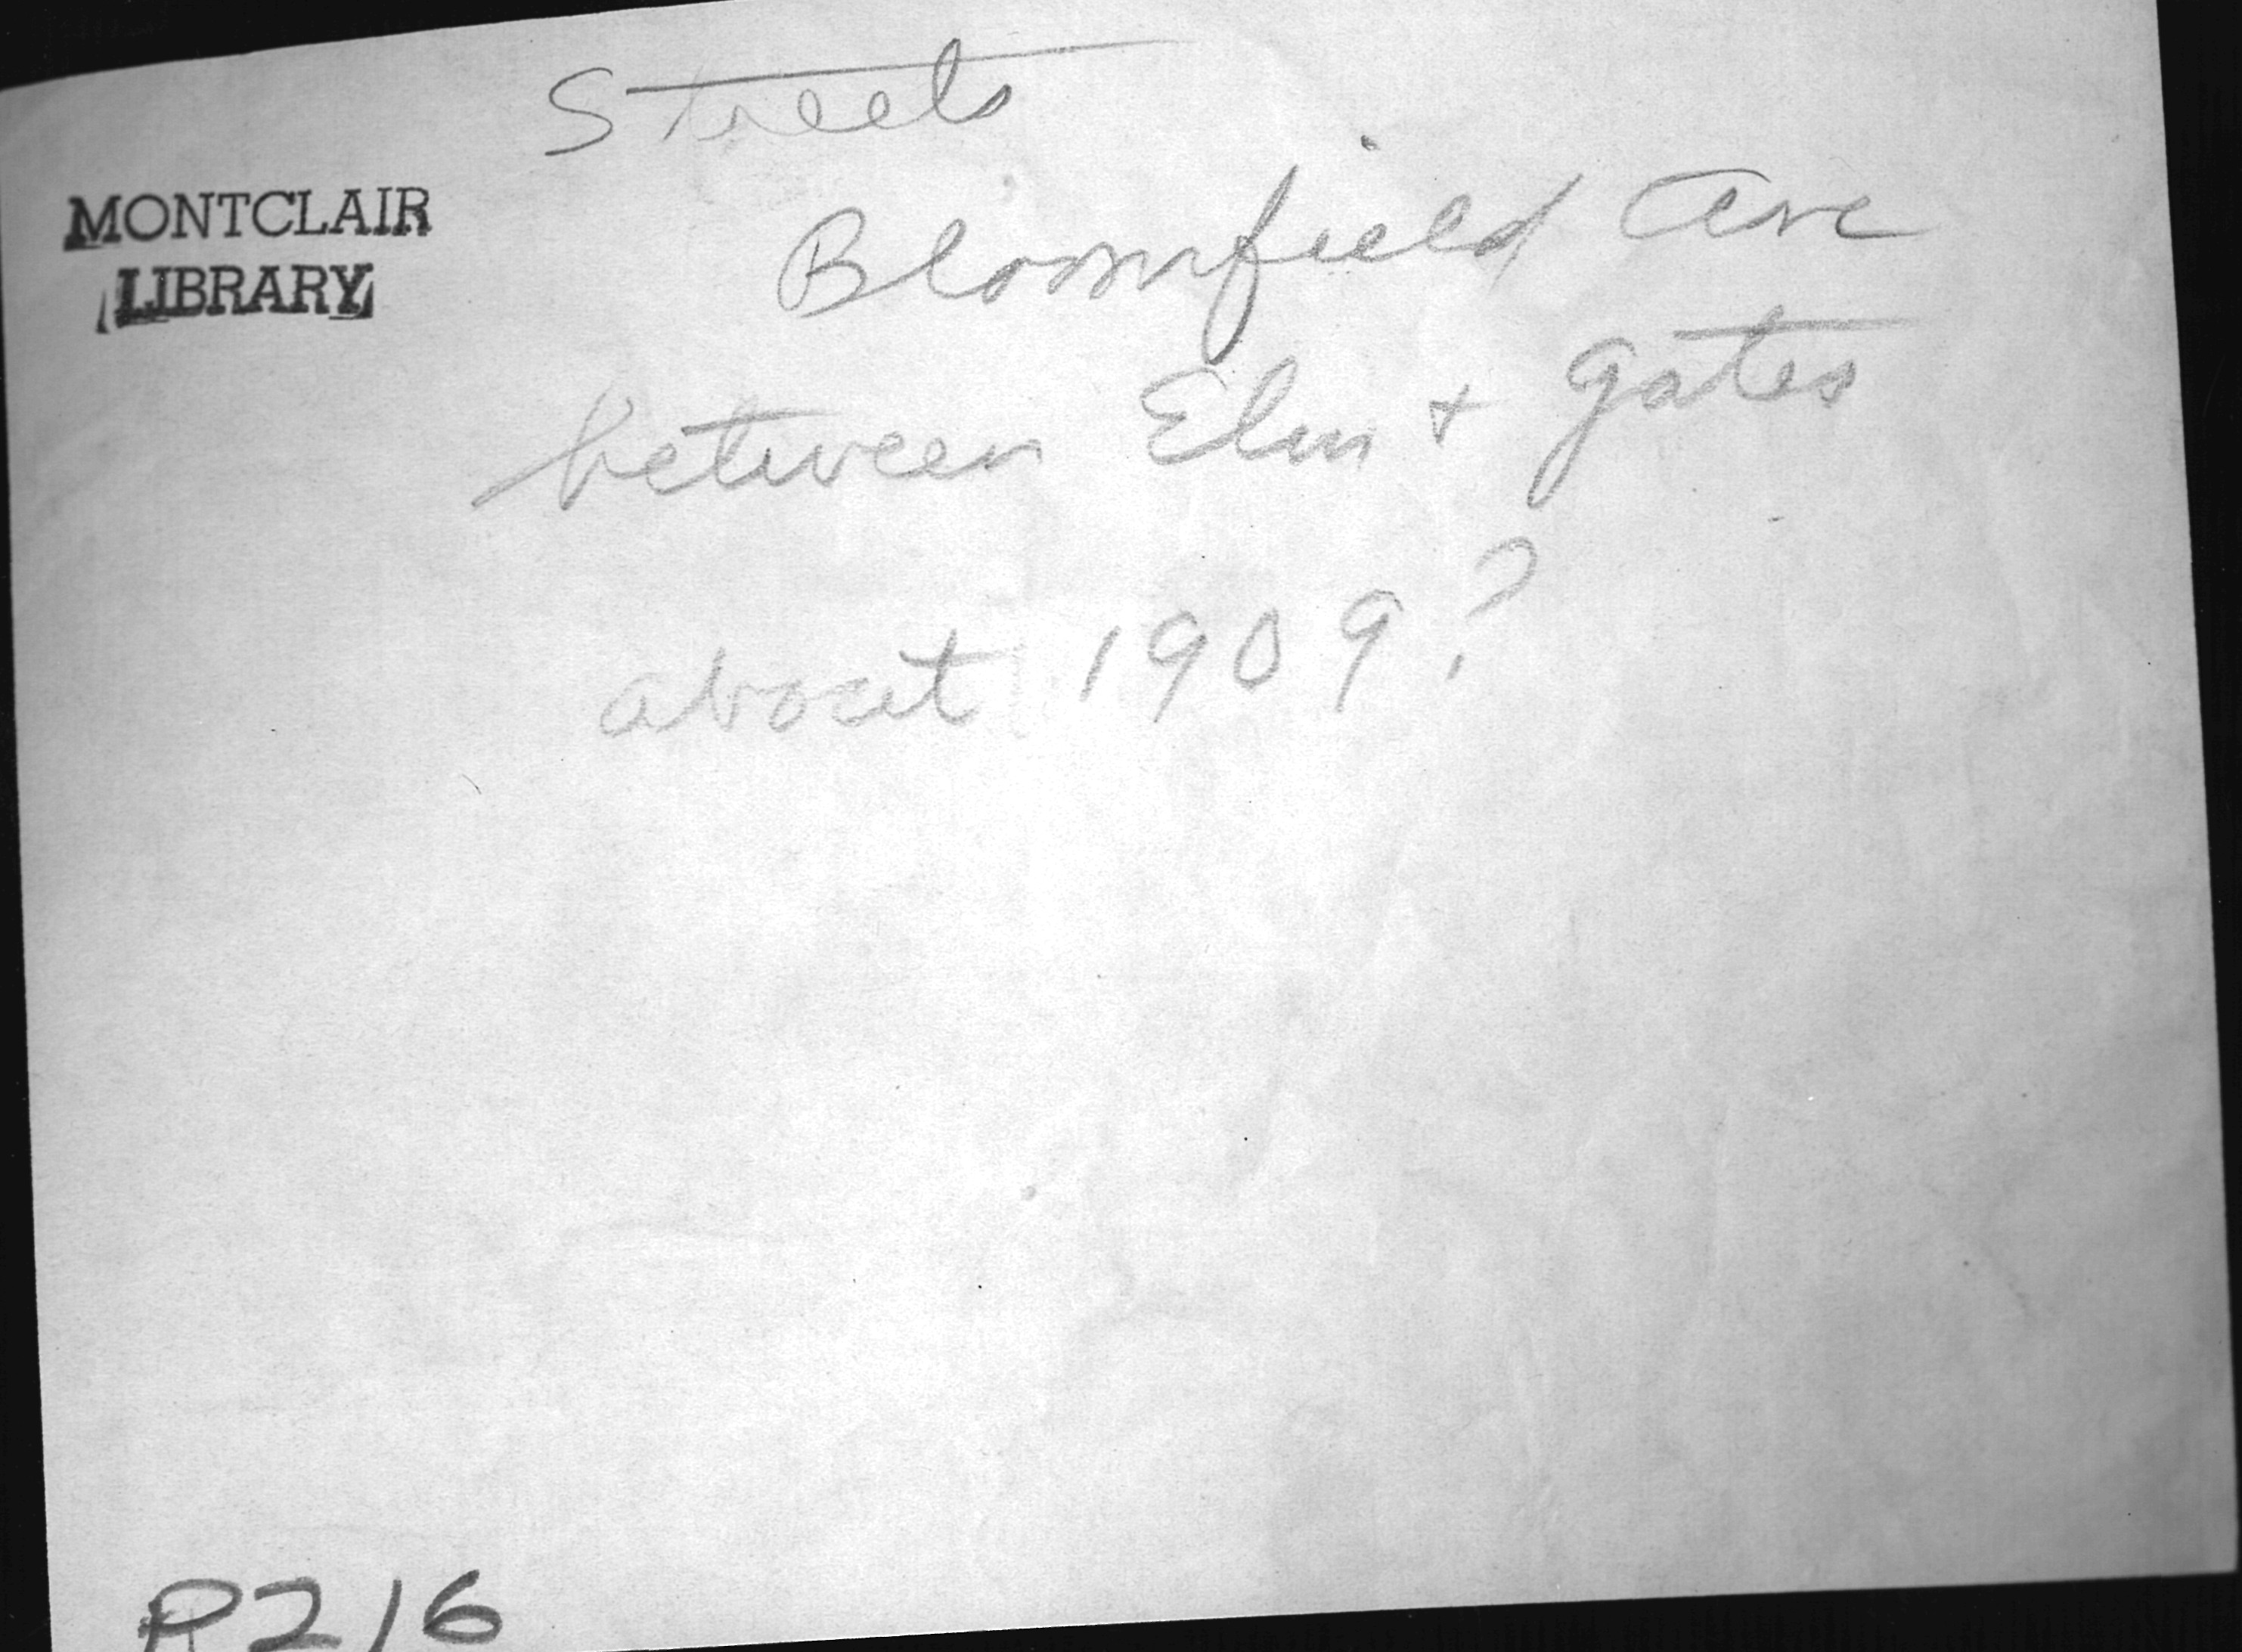 Streets
MONTCLAIR
LIBRARY
Bloomfield Ave
between Elm + Gates
about 1909?
P216